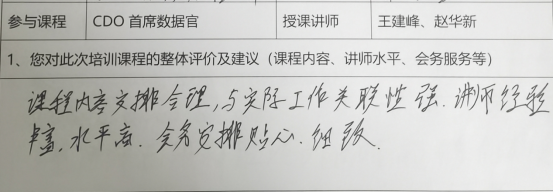 参与课程 CDO 首席数据官 授课讲师 王建峰、赵华新
1、您对此次培训课程的整体评价及建议（课程内容、讲师水平、会务服务等）
课程内容安排合理，与实际工作关联性强.讲师经验
丰富,水平高.会务安排贴心.细致.